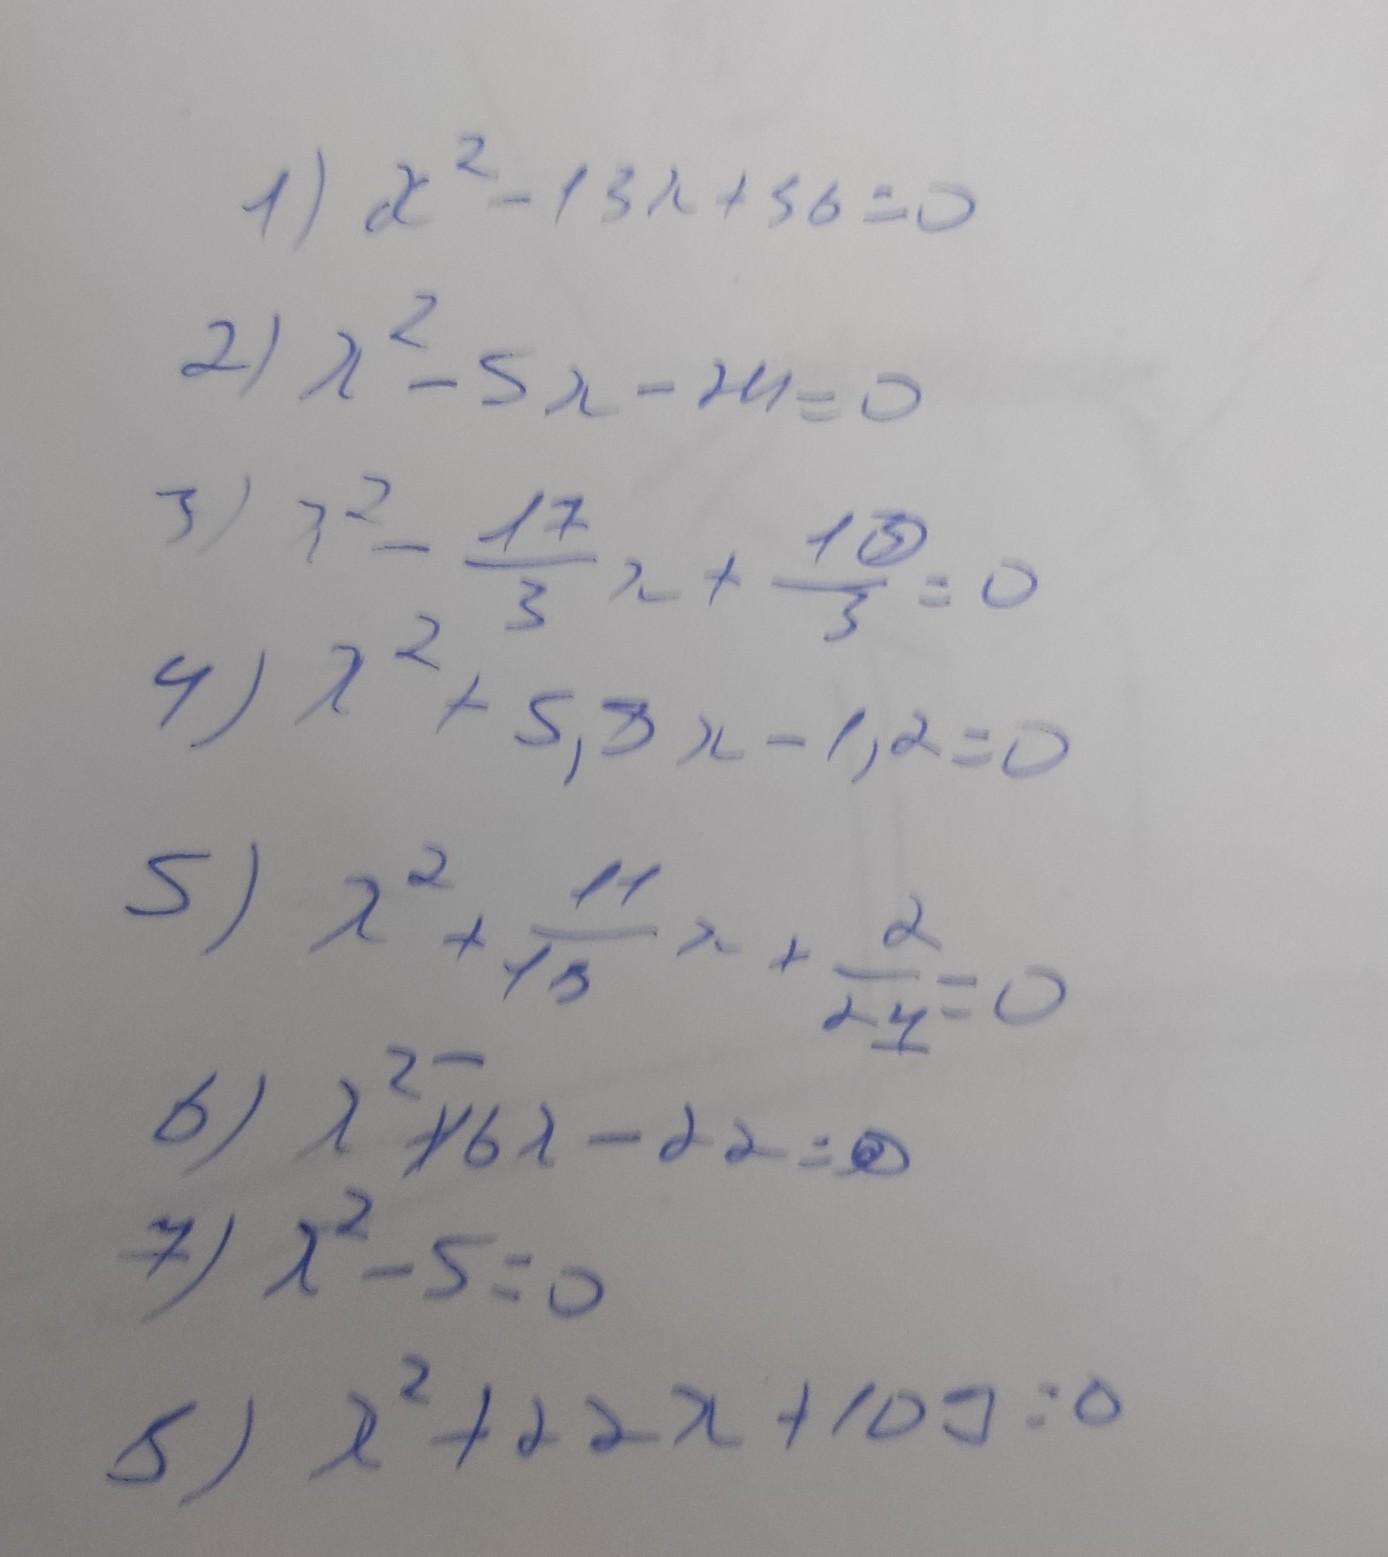 1) x² - 13x + 36 = 0
2) x² - 5x - 24 = 0
3) x² - 17/3 x + 10/3 = 0
4) x² + 5,8x - 1,2 = 0
5) x² + 11/15 x + 2/24 = 0
6) x² - 6x - 22 = 0
7) x² - 5 = 0
8) x² + 22x + 109 = 0